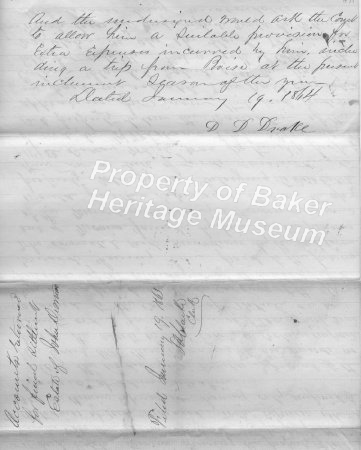 And the undersigned would ask the Court
to allow him a Suitable provision for
Extra Expenses incurred by him, inclu
ding a trip from Boise at the present
inclement Season of the year
Dated January 19, 1864
D D Drake
Property of Baker
Heritage Museum
Accounts returned
for final Settlement
Estate of John
Filed January 19, 186
Clerk